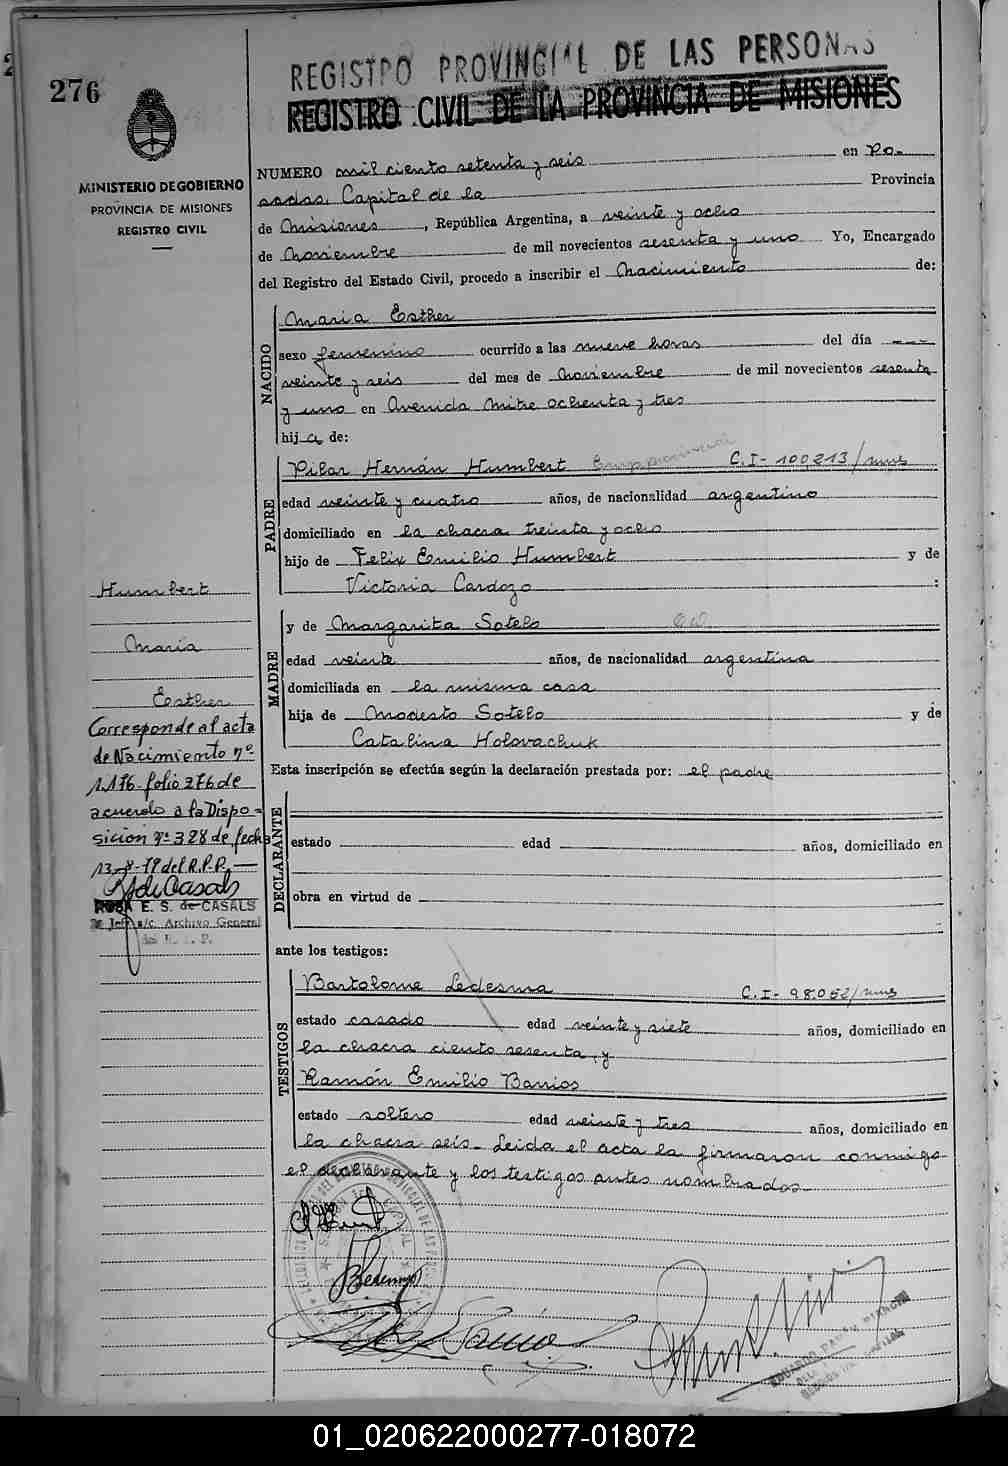 276
REGISTRO PROVINCIAL DE LAS PERSONAS
REGISTRO CIVIL DE LA PROVINCIA DE MISIONES
MINISTERIO DE GOBIERNO
PROVINCIA DE MISIONES
REGISTRO CIVIL
NUMERO mil ciento setenta y seis en Po-
sadas, Capital de la Provincia
de Misiones, República Argentina, a veinte y ocho
de Noviembre de mil novecientos sesenta y uno Yo, Encargado
del Registro del Estado Civil, procedo a inscribir el Nacimiento de:
NACIDO
Maria Esther
sexo femenino ocurrido a las nueve horas del día ---
veinte y seis del mes de Noviembre de mil novecientos sesenta
y uno en Avenida Mitre ochenta y tres
hija de:
PADRE
Pilar Hernán Humbert C.I- 100,213/mnes
edad veinte y cuatro años, de nacionalidad argentino
domiciliado en la chacra treinta y ocho
hijo de Felix Emilio Humbert y de
Victoria Cardozo :
MADRE
y de Margarita Sotelo
edad veinte años, de nacionalidad argentina
domiciliada en la misma casa
hija de Modesto Sotelo y de
Catalina Holovachuk
Esta inscripción se efectúa según la declaración prestada por: el padre
DECLARANTE
estado edad años, domiciliado en
obra en virtud de
ante los testigos:
TESTIGOS
Bartolome Ledesma C.I- 98.052/mnes
estado casado edad veinte y siete años, domiciliado en
la chacra ciento sesenta, y
Ramón Emilio Barrios
estado soltero edad veinte y tres años, domiciliado en
la chacra seis- Leida el acta la firmaron conmigo
el declarante y los testigos antes nombrados-
Humbert
Maria
Esther
Corresponde al acta
de Nacimiento nº
1.176 folio 276 de
acuerdo a la Dispo-
sición nº 328 de fecha
13-8-79 del R.P.P.
ROSA E. S. de CASALS
Jefe a/c. Archivo General
del R. P. P.
01_020622000277-018072